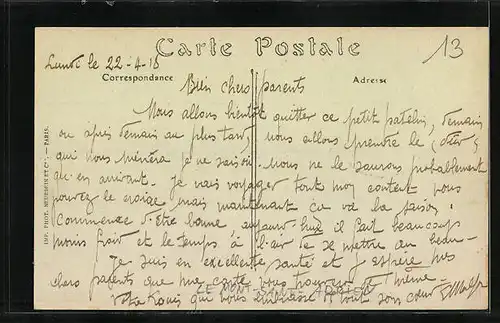 Carte Postale
13
Lundi le 22-4-18
Correspondance
Adresse
Bien chers parents
Nous allons bientôt quitter ce petit patelin, demain
ou après demain au plus tard, nous allons prendre le
qui nous mènera je ne sais où. Nous ne le saurons probablement
qu'en arrivant. Je vais voyager tout mon content vous
pouvez le croire, mais maintenant ca va la saison
commence d'être bonne, aujourd'hui il fait beaucoup
moins froid et le temps à l'air de se mettre au beau.
Je suis en excellente santé et j'espère mes
chers parents que ma carte vous trouvera de même.
Votre qui vous embrasse de tout son cœur
IMP. PHOT. NEURDEIN ET Cie. — PARIS.